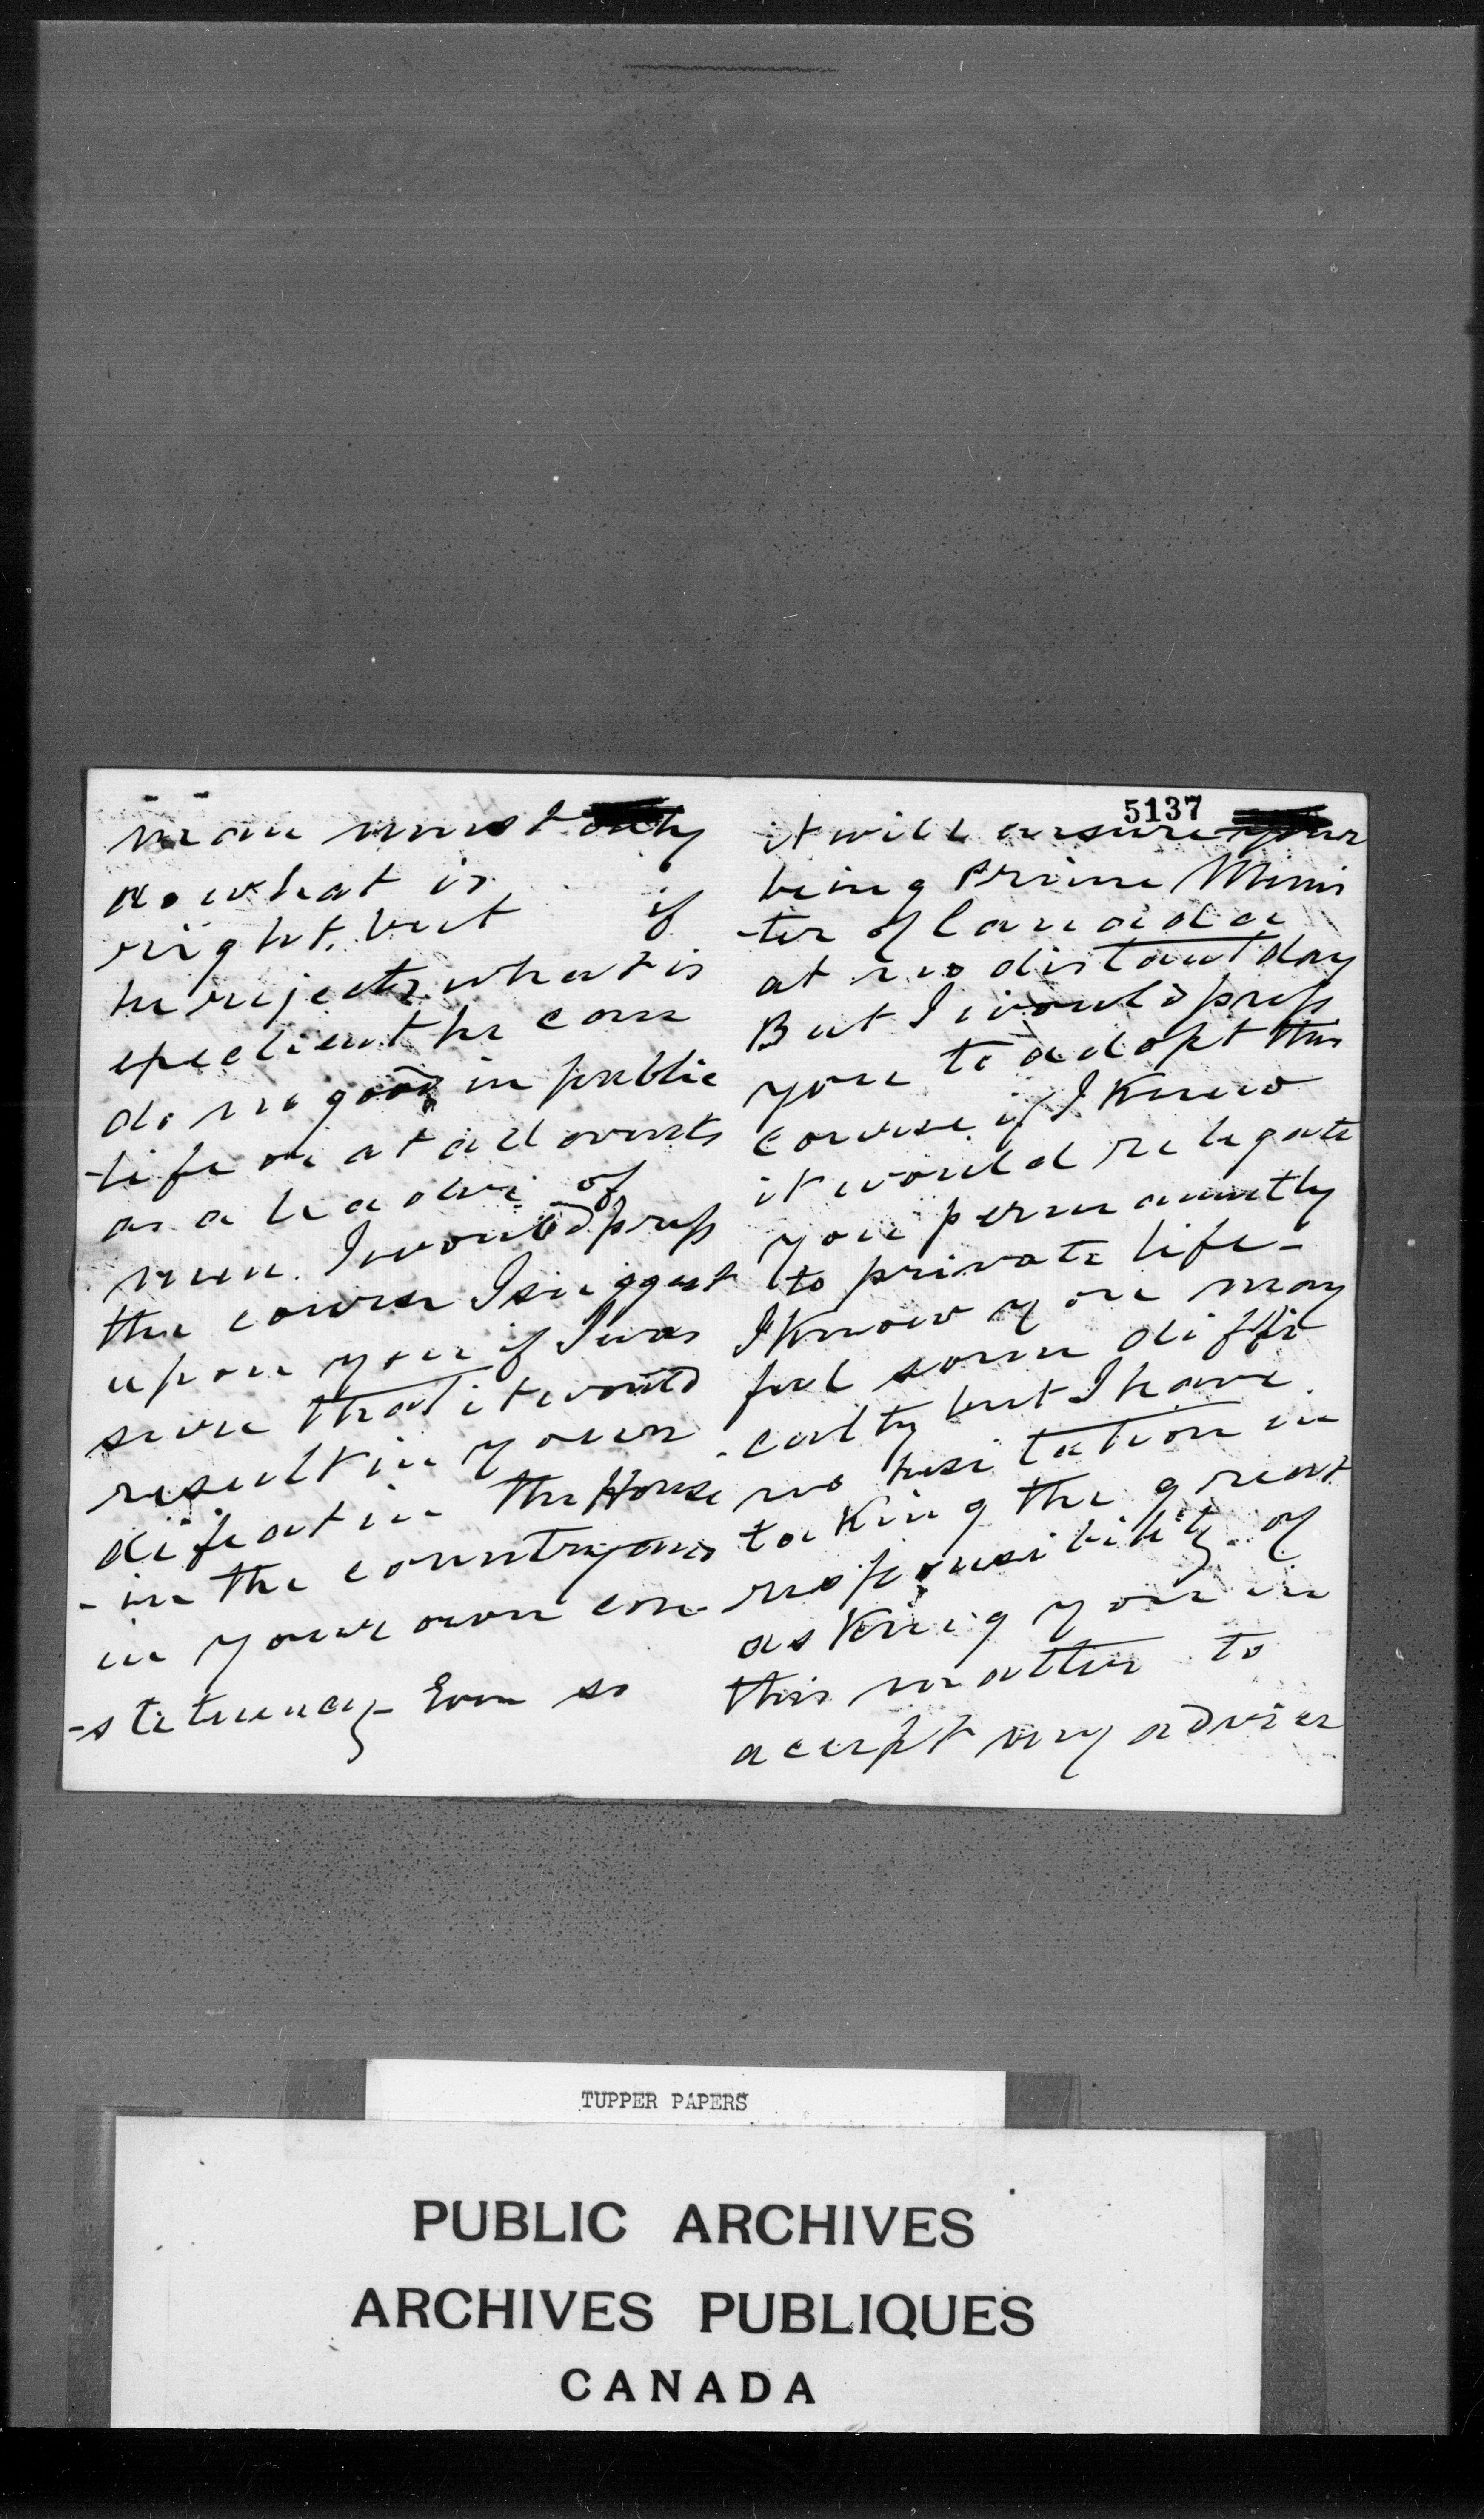 man must only
do what is
right, but if
he rejects what is
expedient he can
do no good in public
-life or at all events
as a leader of
men. I would press
the course I suggest
upon you if I was
sure that it would
result in your
defeat in the House
- in the country and
in your own con-
-stituency - Even so
5137
it will ensure your
being Prime Minis
-ter of Canada
at no distant day
But I would press
you to adopt this
course if I knew
it would relegate
you permanently
to private life -
I know you may
feel some diffi
-culty but I have
no hesitation in
taking the great
responsibility of
asking you in
this matter to
accept my advice
TUPPER PAPERS
PUBLIC ARCHIVES
ARCHIVES PUBLIQUES
CANADA